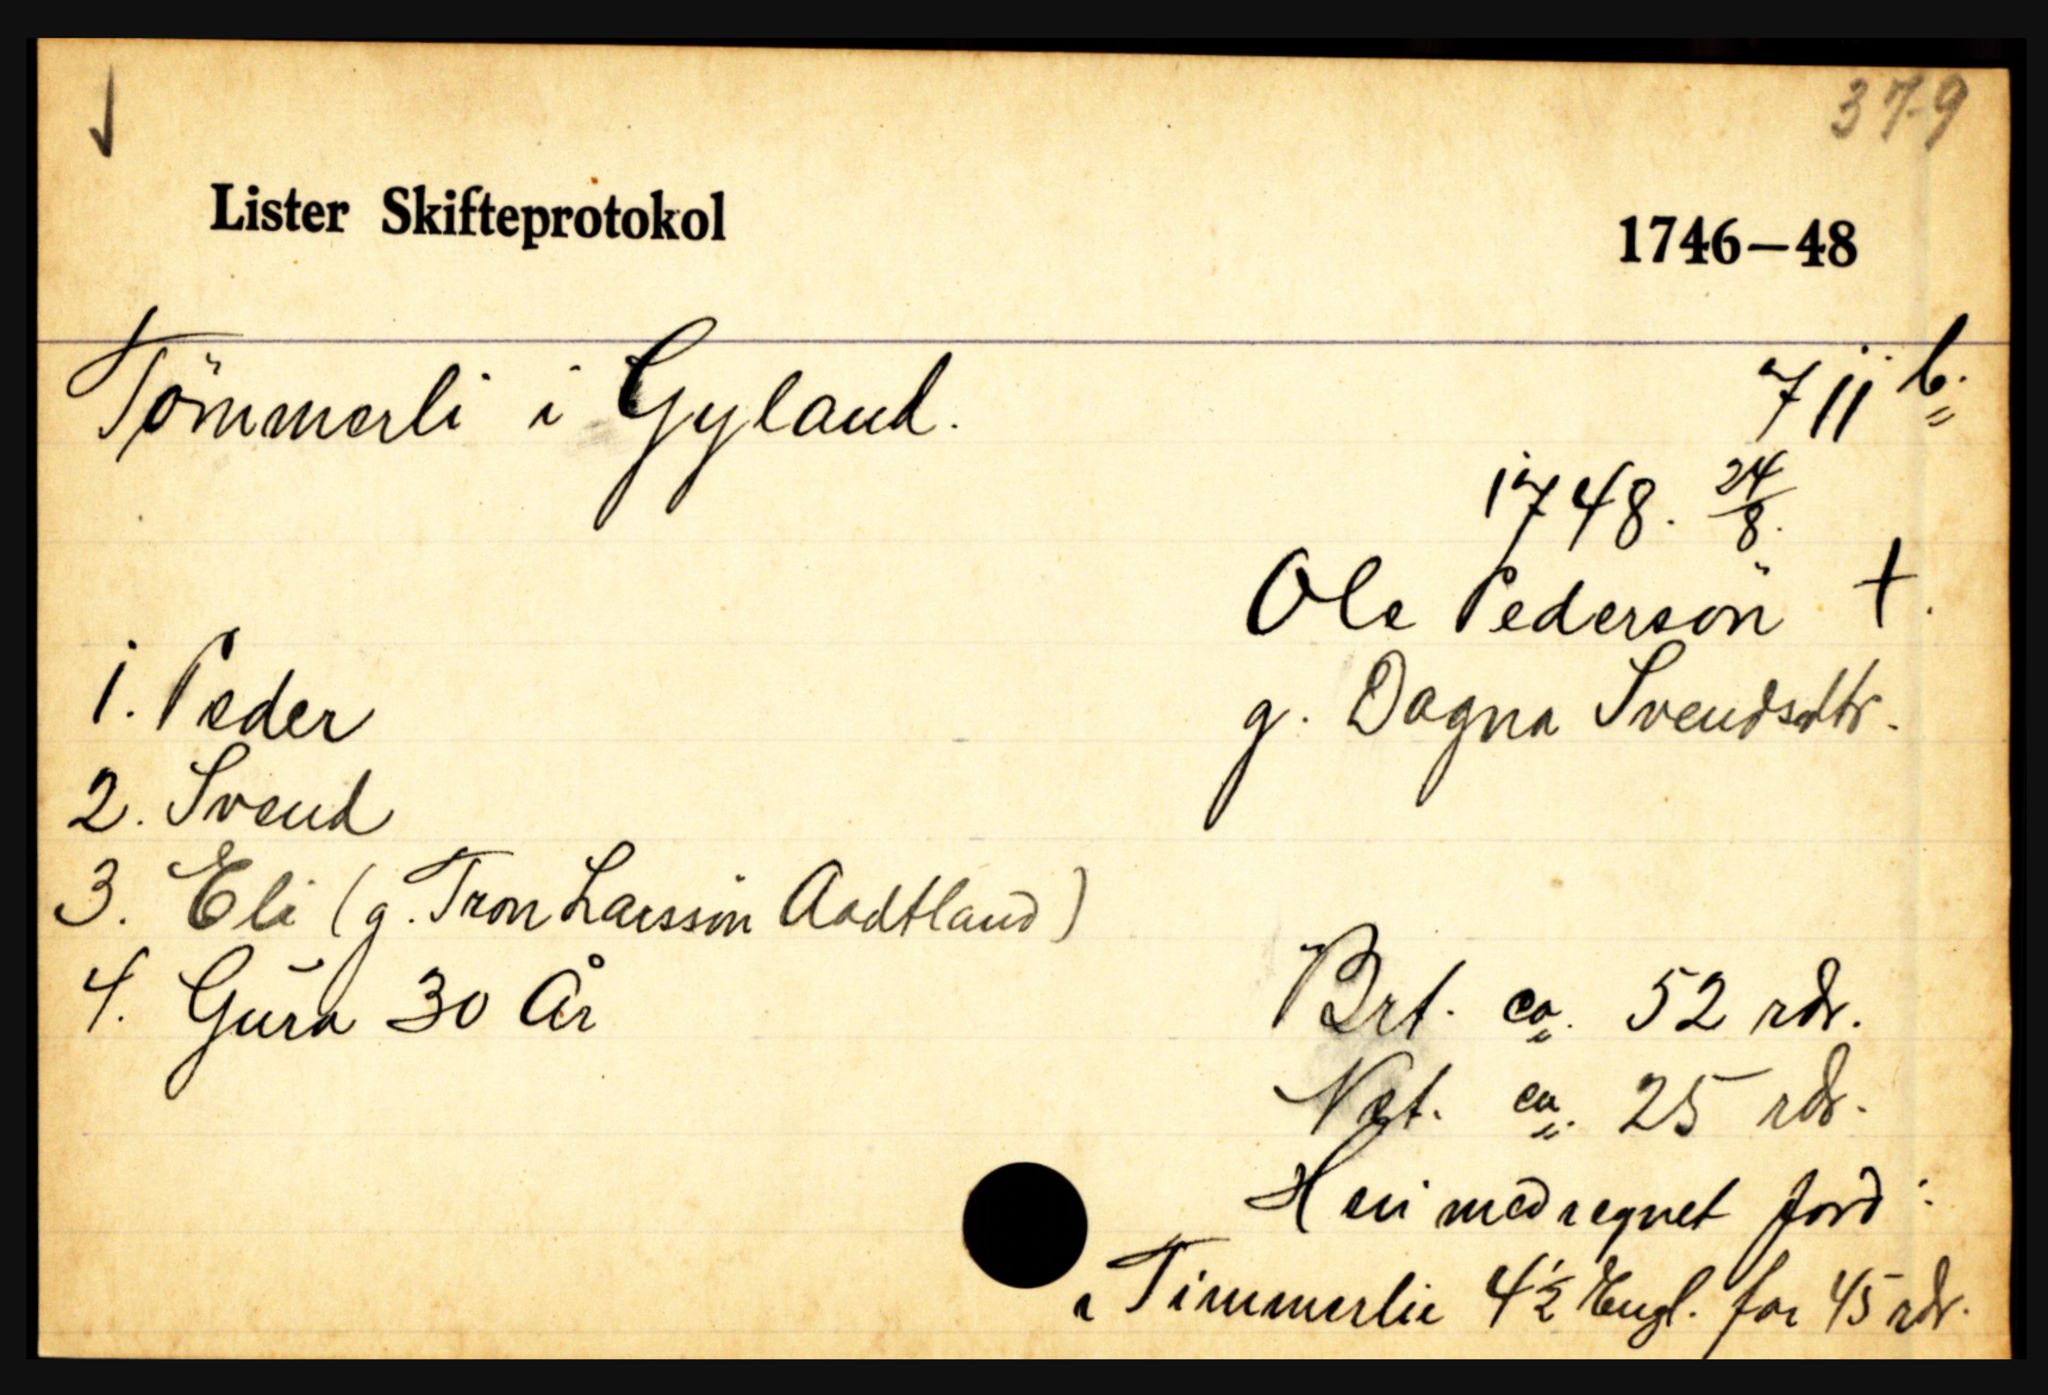 379
Lister Skifteprotokol 1746–48
Tömmerli i Gyland. 711 b.
1748. 24/8.
Ole Pedersön †.
1. Peder g. Dagna Svendsdtr.
2. Svend
3. Eli (g. Tron Larssön Aadtland)
4. Gura 30 År Brt. ca. 52 rdr.
Net. ca. 25 rdr.
Heri medregnet jord:
i Timmerlie 4 1/2 Engl. for 45 rdr.